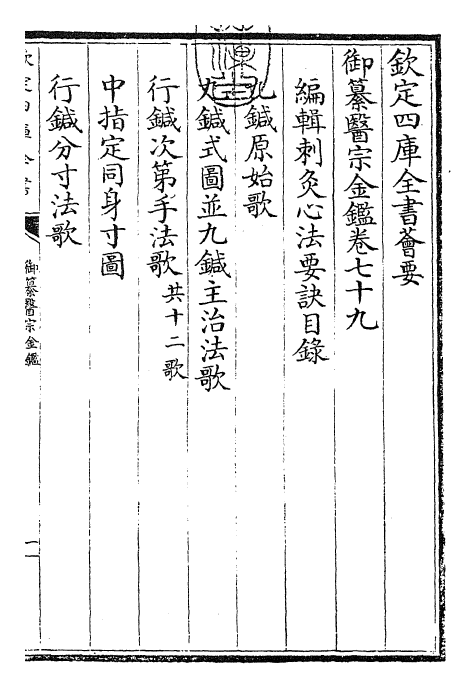 欽定四庫全書薈要
御纂醫宗金鑑卷七十九
編輯刺灸心法要訣目錄
九鍼原始歌
九鍼式圖並九鍼主治法歌
行鍼次第手法歌共十二歌
中指定同身寸圖
行鍼分寸法歌
欽定四庫全書
御纂醫宗金鑑